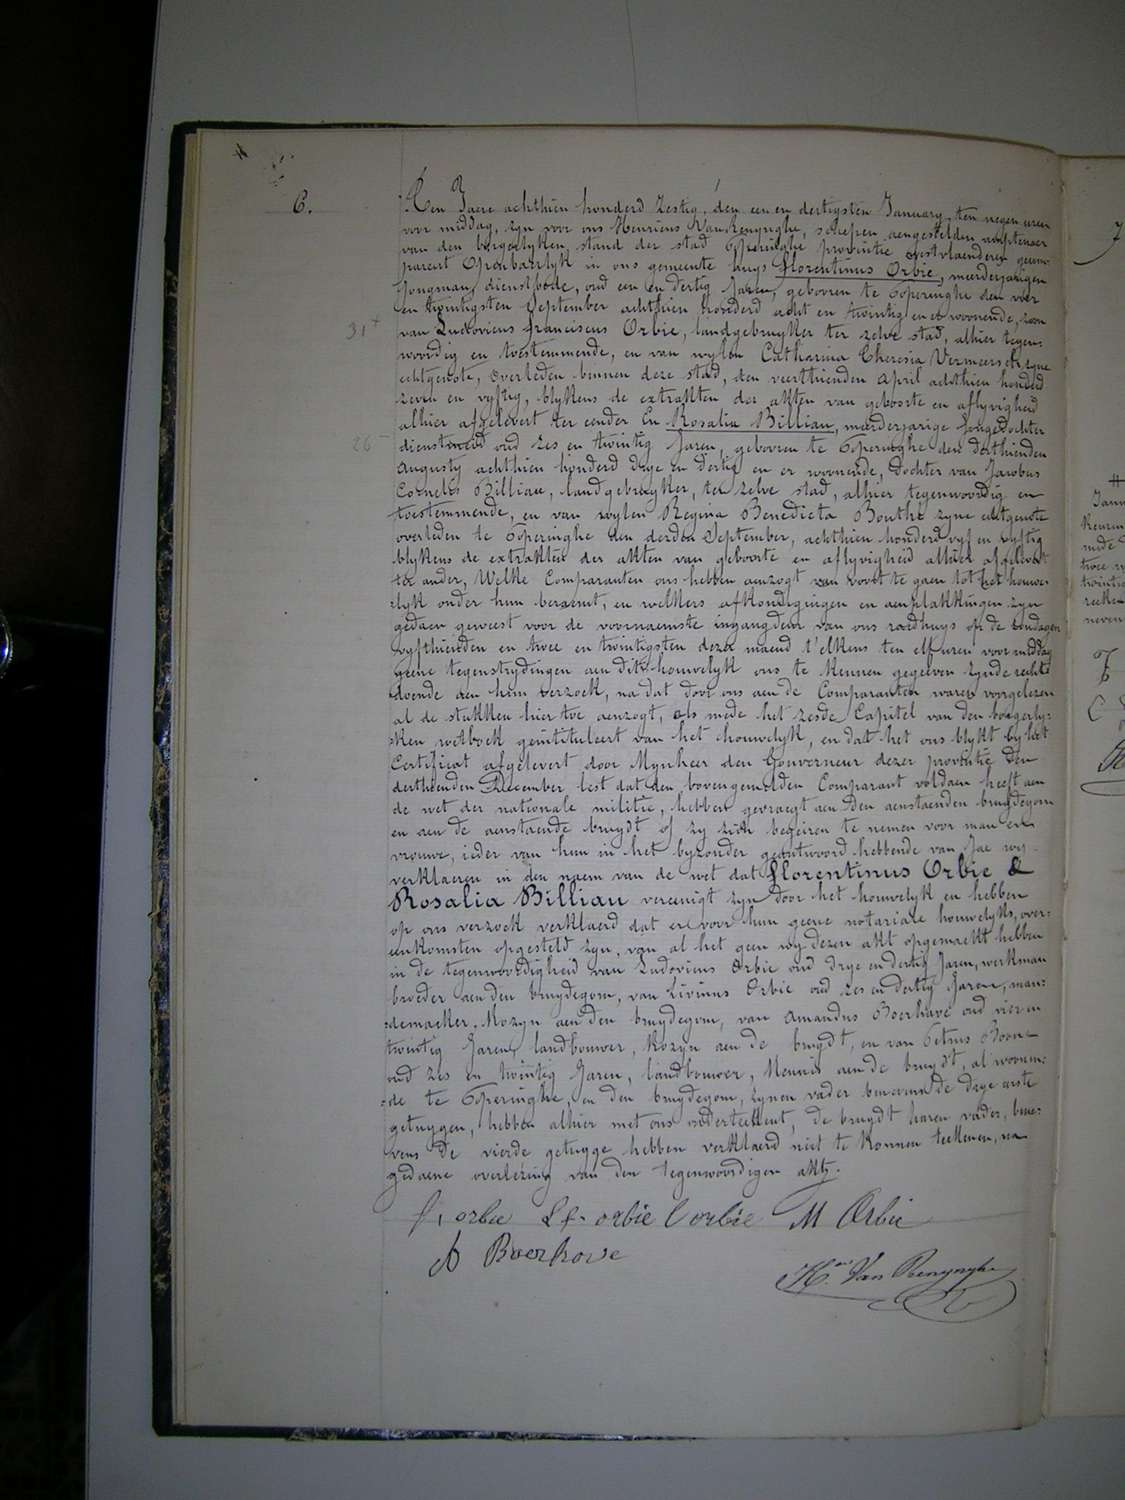 6.
Den Jaere achthien honderd zestig, den een en dertigsten January, ten negen uren
voor middag, zyn voor ons Henricus Van Renynghe, schepen aengestelden amptenaer
van den borgerlyken stand der stad Poperinghe provintie westvlaenderen gecom-
pareert Openbaerlyk in ons gemeente huys Florentinus Orbie, meerderjarigen
Jongman, dienstbode, oud een en dertig Jaren, gebooren te Poperinghe den vier
en twintigsten September achthien honderd acht en twintig en er woonende, zoon
31
van Ludovicus Franciscus Orbie, landgebruyker ter zelve stad, alhier tegen-
woordig en toestemmende, en van wylen Catharina Theresia Vermeersch zyne
echtgenote, overleden binnen deze stad, den veerthienden April achthien honderd
zeven en vyftig, blykens de extrakten der akten van geboorte en aflyvigheid
alhier afgelevert ter eender En Rosalia Billiau, meerderjarige Jongedochter
26
dienstmeid oud zes en twintig Jaren, gebooren te Poperinghe den derthienden
Augusty achthien honderd drye en dertig en er woonende, Dochter van Jacobus
Cornelis Billiau, landgebruyker, ter zelve stad, alhier tegenwoordig en
toestemmende, en van wylen Regina Benedicta Bouthe zyne echtgenote
overleden te Poperinghe den derden September, achthien honderd vyf en vyftig
blykens de extrakten der akten van geboorte en aflyvigheid alhier afgelevert
ter ander, Welke Comparanten ons hebben aenzogt van voort te gaen tot het houwe-
lyk onder hun beraemt, en welkers afkondigingen en aenplakkingen zyn
gedaen geweest voor de voornaemste ingangdeur van ons raedhuys op de zondagen
vyfthienden en twee en twintigsten dezer maend t'elkens ten elf uren voormiddag
geene tegenstrydingen aen dit houwelyk ons te kennen gegeven zynde rechte
doende aen hun verzoek, na dat door ons aen de Comparanten waren voorgelezen
al de stukken hier toe aenzogt, als mede het zesde Capitel van den borgerly-
ken wetboek geintituleert van het houwelyk, en dat het ons blykt by het
Certificat afgelevert door Mynheer den Gouverneur dezer provintie den
derthienden December lest dat den bovengemelden Comparant voldaen heeft aen
de wet der nationale militie, hebben gevraegt aen den aenstaenden bruydegom
en aen de aenstaende bruydt of zy zich begeiren te nemen voor man en
vrouwe, ieder van hun in het byzonder geantwoord hebbende van Jae wy
verklaeren in den naem van de wet dat Florentinus Orbie &
Rosalia Billiau vereenigt zyn door het houwelyk en hebben
op ons verzoek verklaerd dat er voor hun geene notariale houwelyks, over-
eenkomsten opgesteld zyn, van al het geen wy dezen akt opgemaekt hebben
in de tegenwoordigheid van Ludovicus Orbie oud drye en dertig Jaren, werkman
broeder aen den bruydegom, van Livinus Orbie oud zes en dertig Jaren, man-
demaeker, Kozyn aen den bruydegom, van Amandus Boerhave oud vier en
twintig Jaren, landbouwer, Kozyn aen de bruydt, en van Petrus Boone
oud zes en twintig Jaren, landbouwer, Kennis aen de bruydt, al woonen-
de te Poperinghe, en den bruydegom, zynen vader benevens de drye eerste
getuygen, hebben alhier met ons onderteekent, de bruydt haren vader, bene-
vens de vierde getuyge hebben verklaerd niet te konnen teekenen, na
gedaene overlezing van den tegenwoordigen akt.
F, orbie L f. orbie L orbie M Orbie
A Boerhave
H. Van Renynghe